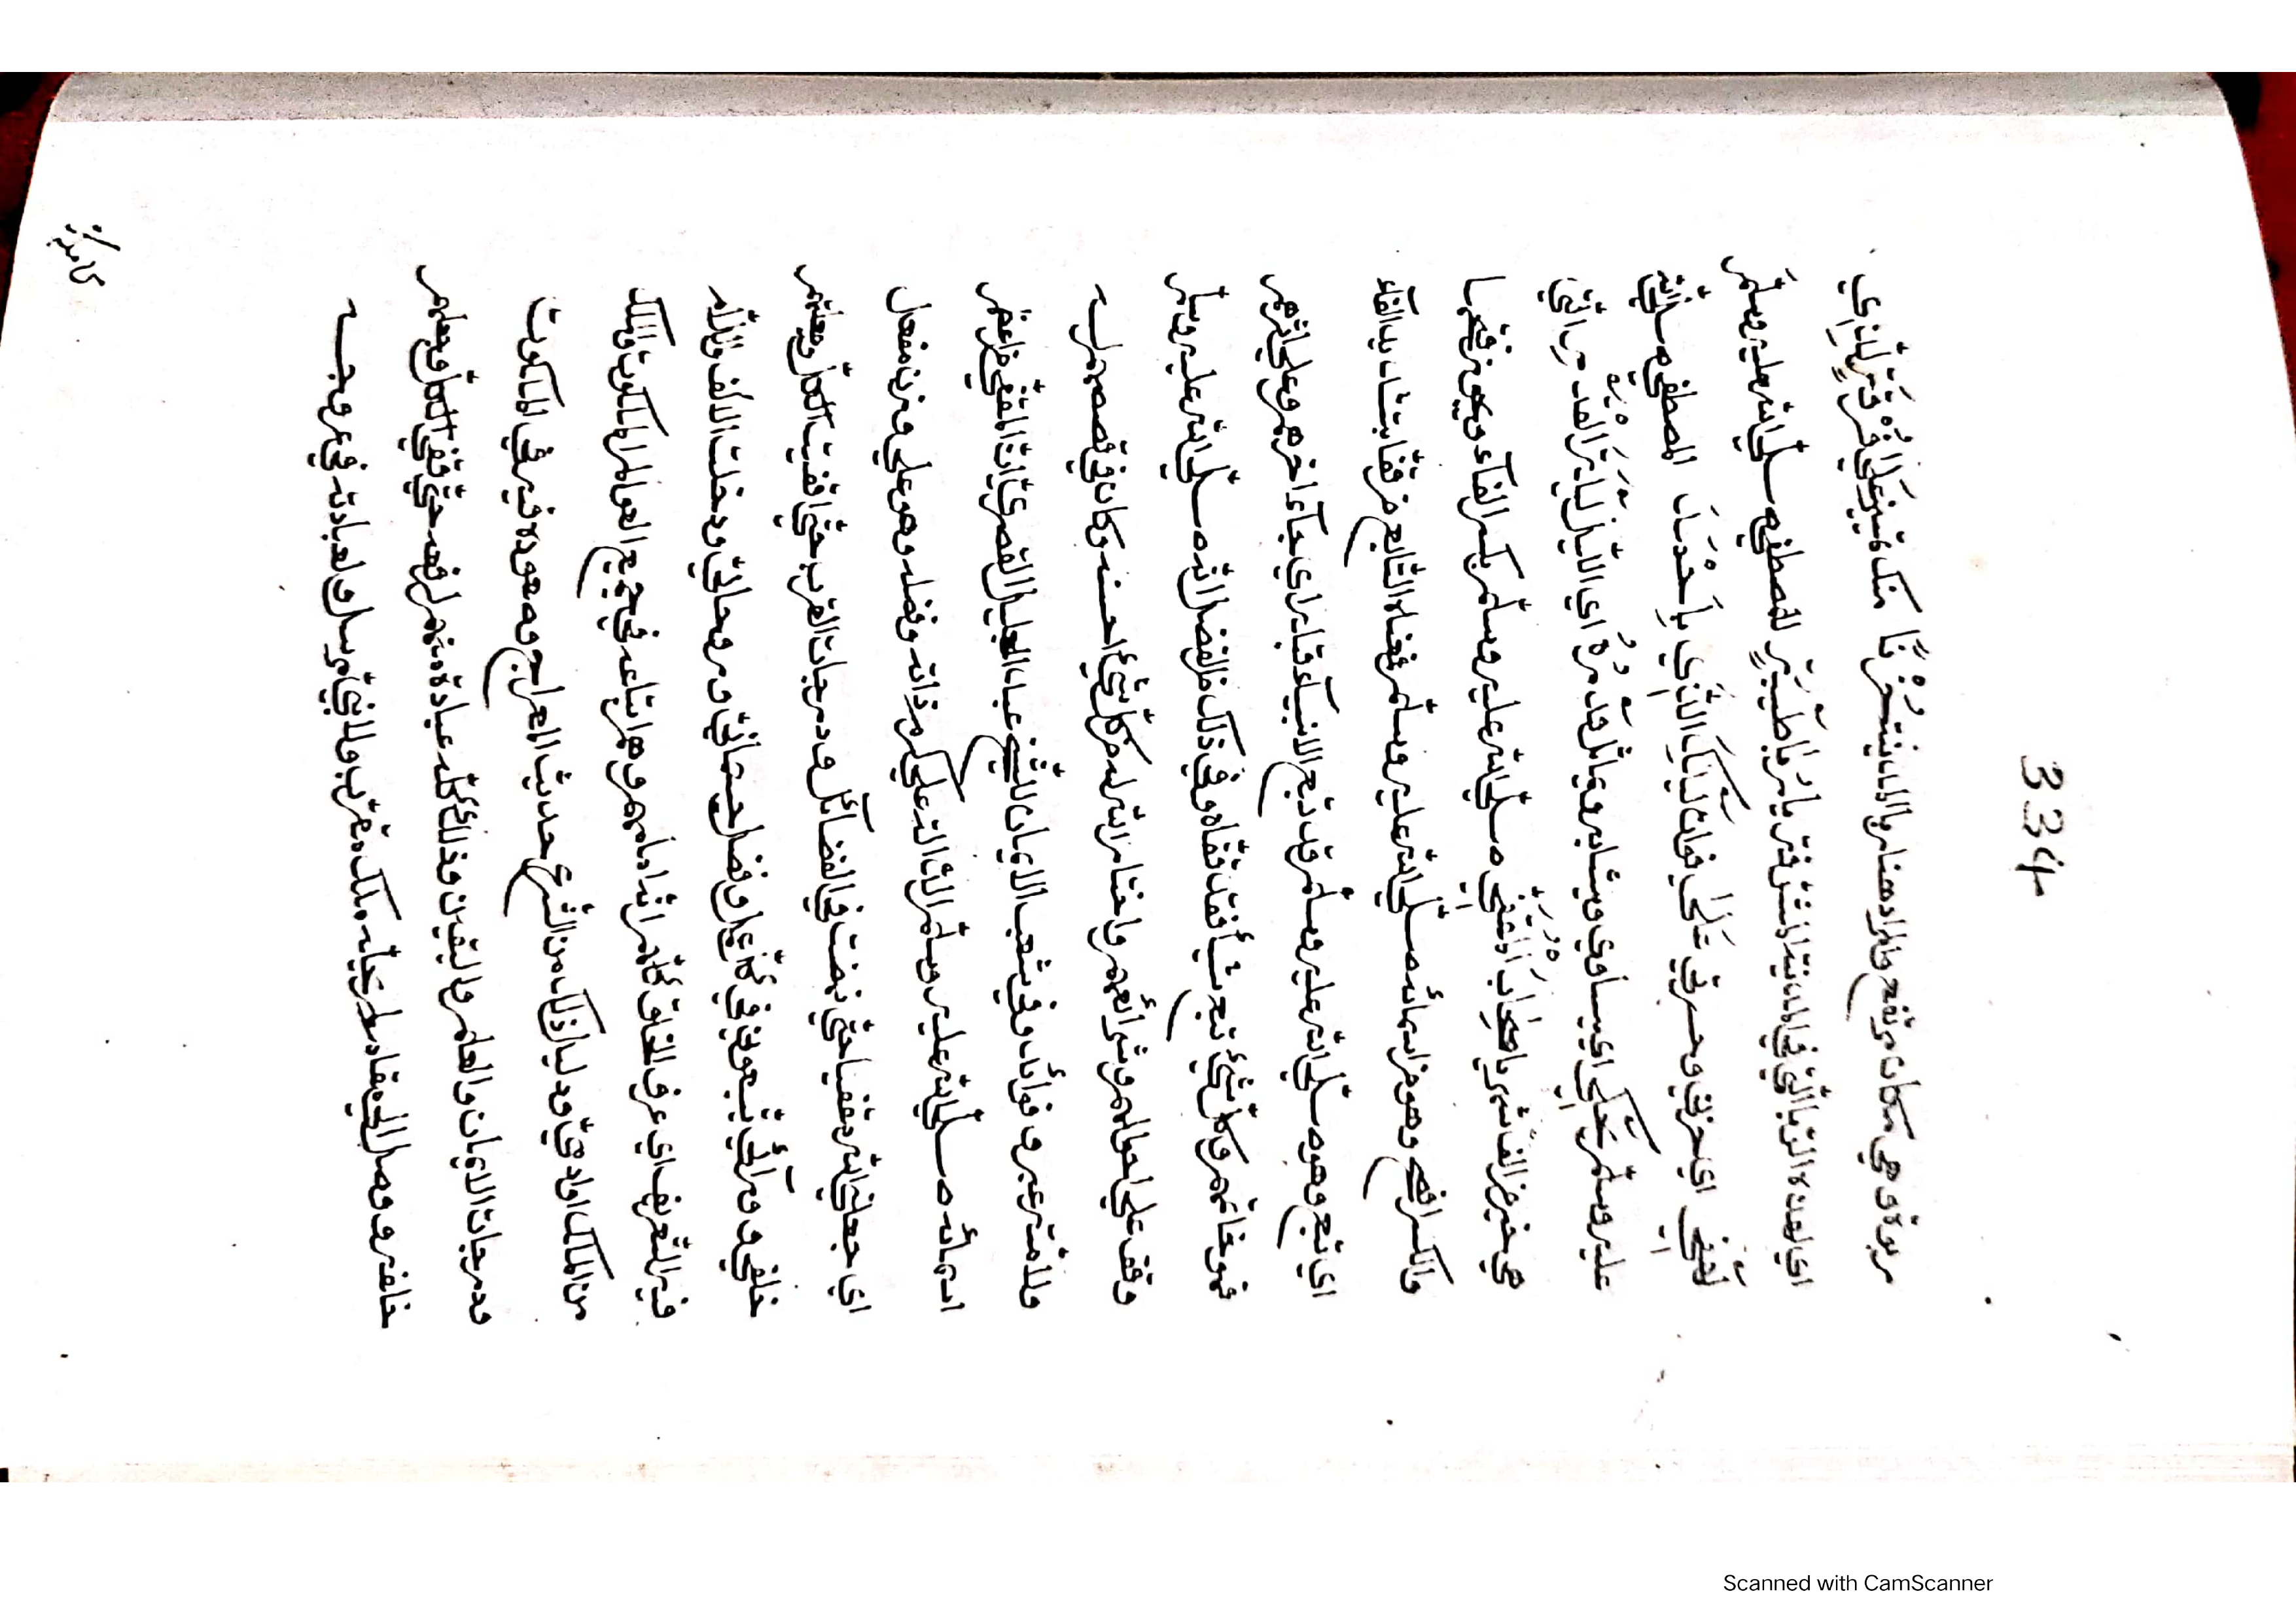 334
ربوة وهي مكان مرتفع والمراد هنا به المدينة حُزْنًا منك متميز على فرقة الذي
اي لهذه التربة التي في المدينة المشرفة يا تربة يا طيبة المصطفى صلى الله عليه وسلم
لهفي اي حزني وحسرتي على فوات ذلك الذي يا حسرتا المصطفى صلى الله
عليه وسلم يحكي اي يساوي ويشابه ويماثل قدره اي الانزل لديه القدر الذي
هي خبر الف شهر يا اقتفى صلى الله عليه وسلم بكسر الفاء ويجوز فتحها
والكسر افصح وهو من اسمائه صلى الله عليه وسلم فمعناه التابع من قفا بتشديد الفاء
اي تبع وهو صلى الله عليه وسلم قد تبع الانبياء قبله اي جاء آخرهم وعلى اثرهم
فهو خاتمهم وكل شيء تبع شيأ فقد قفاه وفي ذلك من الفضل انه صلى الله عليه وسلم
وقف على احوالهم وشرائعهم واختار الله له من كل شيء احسنه وكان في قصصهم له
ولامته عبر وفوائد وفي شعب الايمان للشيخ عبد الجليل القصري ان المقفى من اعظم
اسمائه صلى الله عليه وسلم الدالة على كرم ذاته وفضله وهو على وزن مفعل
اي جعلني الله مقفيا حتى نهضت في الفضائل ودرجات القرب حتى اقفيت الكل وجعلتهم
خلفي وورائي يتبعوني في كل علم وفضل جسماني وروحاني ودخلت الالف واللام
فيه للتعريف اي عرف الخلق كلهم انه امامهم وهم اتباعه في جميع العوالم الملكوت والملك
من الملك اولدي ودليل ذلك من الشرع حديث المعراج وصعوده فيه في الملكوت
ودرجات الايمان والعلم واليقين وذلك كله عبادة منهم لربه حتى قفى الكل وجعلهم
خلفه ووصل الى مقام لم يصل اليه ملك مقرب ولا نبي مرسل ولعبادته في عروجه